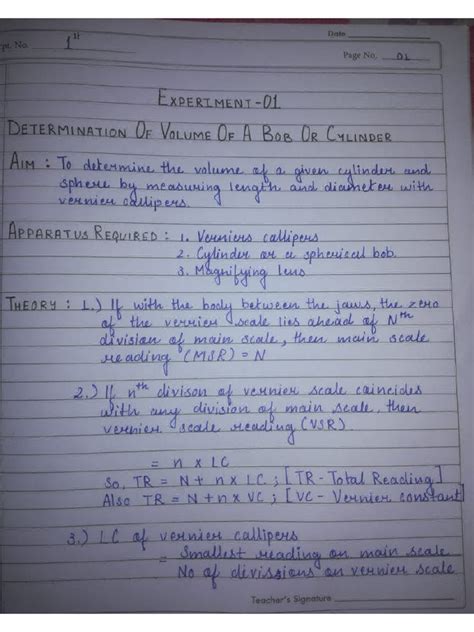 Date
Expt. No. 1st
Page No. 01
EXPERIMENT-01
DETERMINATION OF VOLUME OF A BOB OR CYLINDER
AIM : To determine the volume of a given cylinder and
sphere by measuring length and diameter with
vernier callipers.
APPARATUS REQUIRED : 1. Verniers callipers
2. Cylinder or a spherical bob.
3. Magnifying lens
THEORY : 1.) If with the body between the jaws, the zero
of the vernier scale lies ahead of Nth
division of main scale, then main scale
reading (MSR) = N
2.) If nth divison of vernier scale caincides
with any division of main scale, then
vernier scale reading (VSR)
= n x LC
So, TR = N + n x LC ; [TR - Total Reading]
Also TR = N + n x VC ; [VC - Vernier constant]
3.) LC of vernier callipers
= Smallest reading on main scale
No of divissions on vernier scale
Teacher's Signature